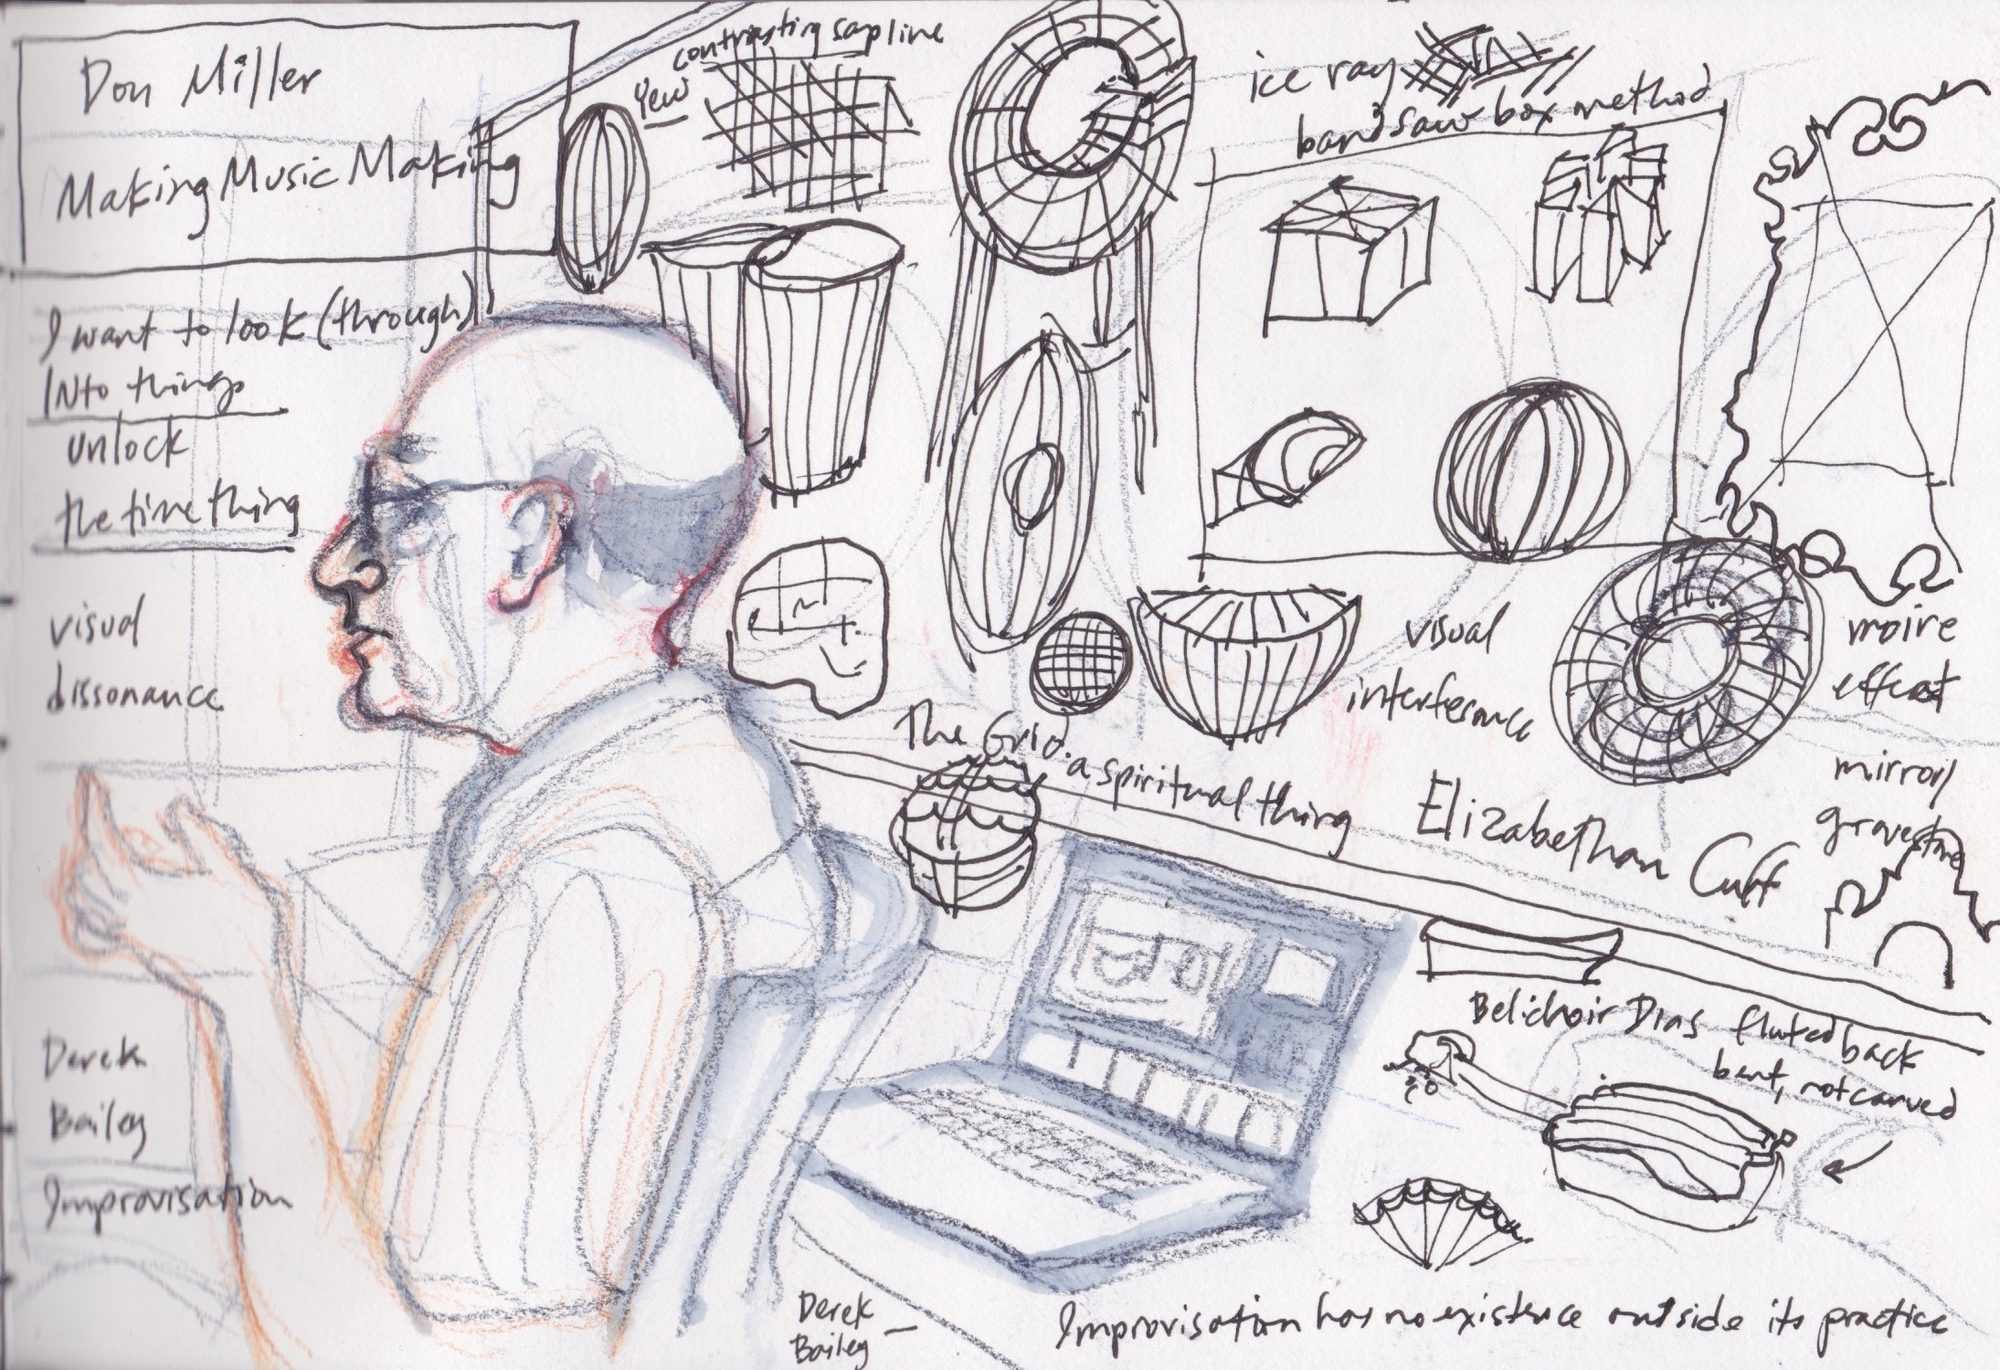 Don Miller
Making Music Making
I want to look (through)
INto things
unlock
the time thing
visual
dissonance
Derek
Bailey
Improvisation
Yew
contrasting sap line
ice ray
bandsaw box method
visual
interference
moire
effect
mirror/
gravestone
The Grid. a spiritual thing
Elizabethan Cuff
Belichoir Dias fluted back
bent, not carved
Derek
Bailey —
Improvisation has no existence outside its practice